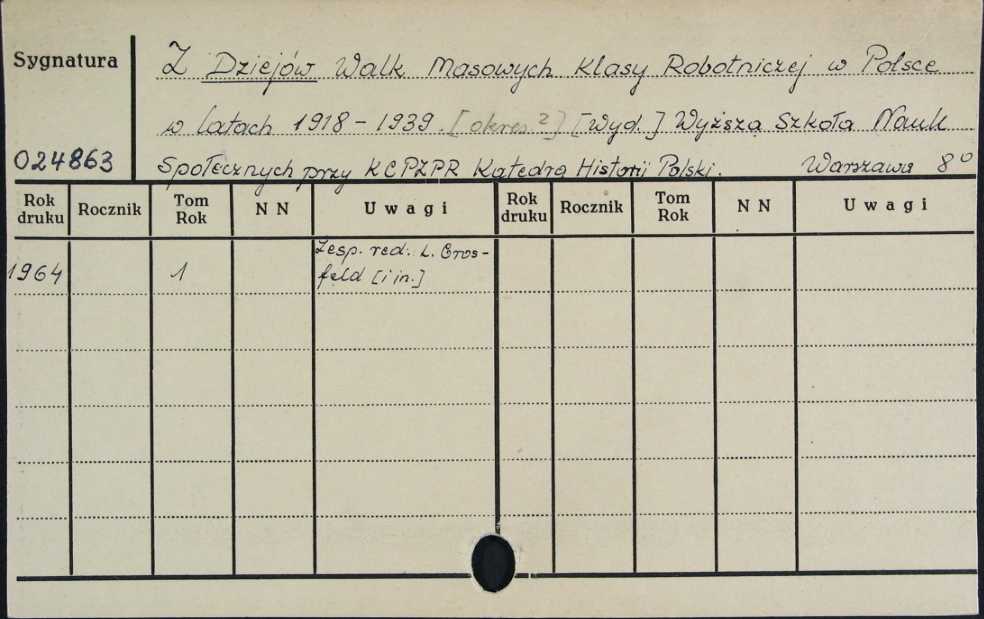 Sygnatura
024863
Z Dziejów Walk Masowych Klasy Robotniczej w Polsce
w latach 1918 - 1939. [okres ?] [Wyd.] Wyższa Szkoła Nauk
Społecznych przy KC PZPR Katedra Historii Polski. Warszawa 8°
Rok druku Rocznik Tom Rok N N Uwagi Rok druku Rocznik Tom Rok N N Uwagi
1964 1 Zesp. red.: L. Gros-
feld [i in.]